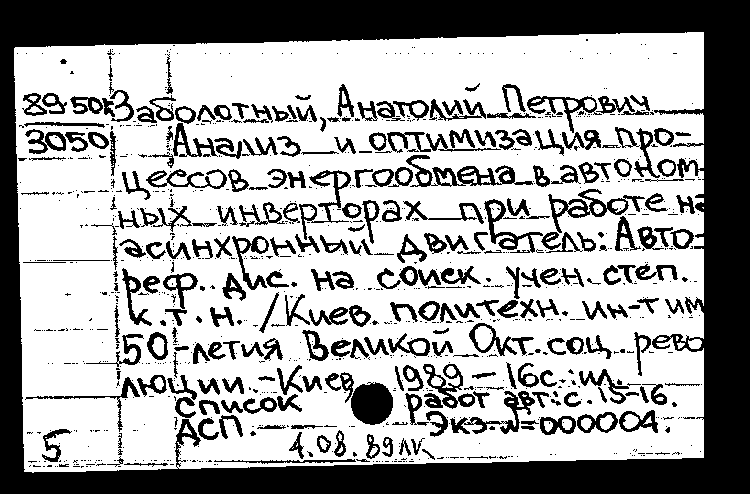 89-50к Заболотный, Анатолий Петрович
3050 Анализ и оптимизация про-
цессов энергообмена в автоном-
ных инверторах при работе на
асинхронный двигатель: Авто-
реф. дис. на соиск. учен. степ.
к.т.н. /Киев. политехн. ин-т им
50-летия Великой Окт. соц. рево
люции. -Киев, 1989 - 16с.:ил.
Список работ авт.: с. 15-16.
ДСП. Экз. №=000004.
5 4.08.89